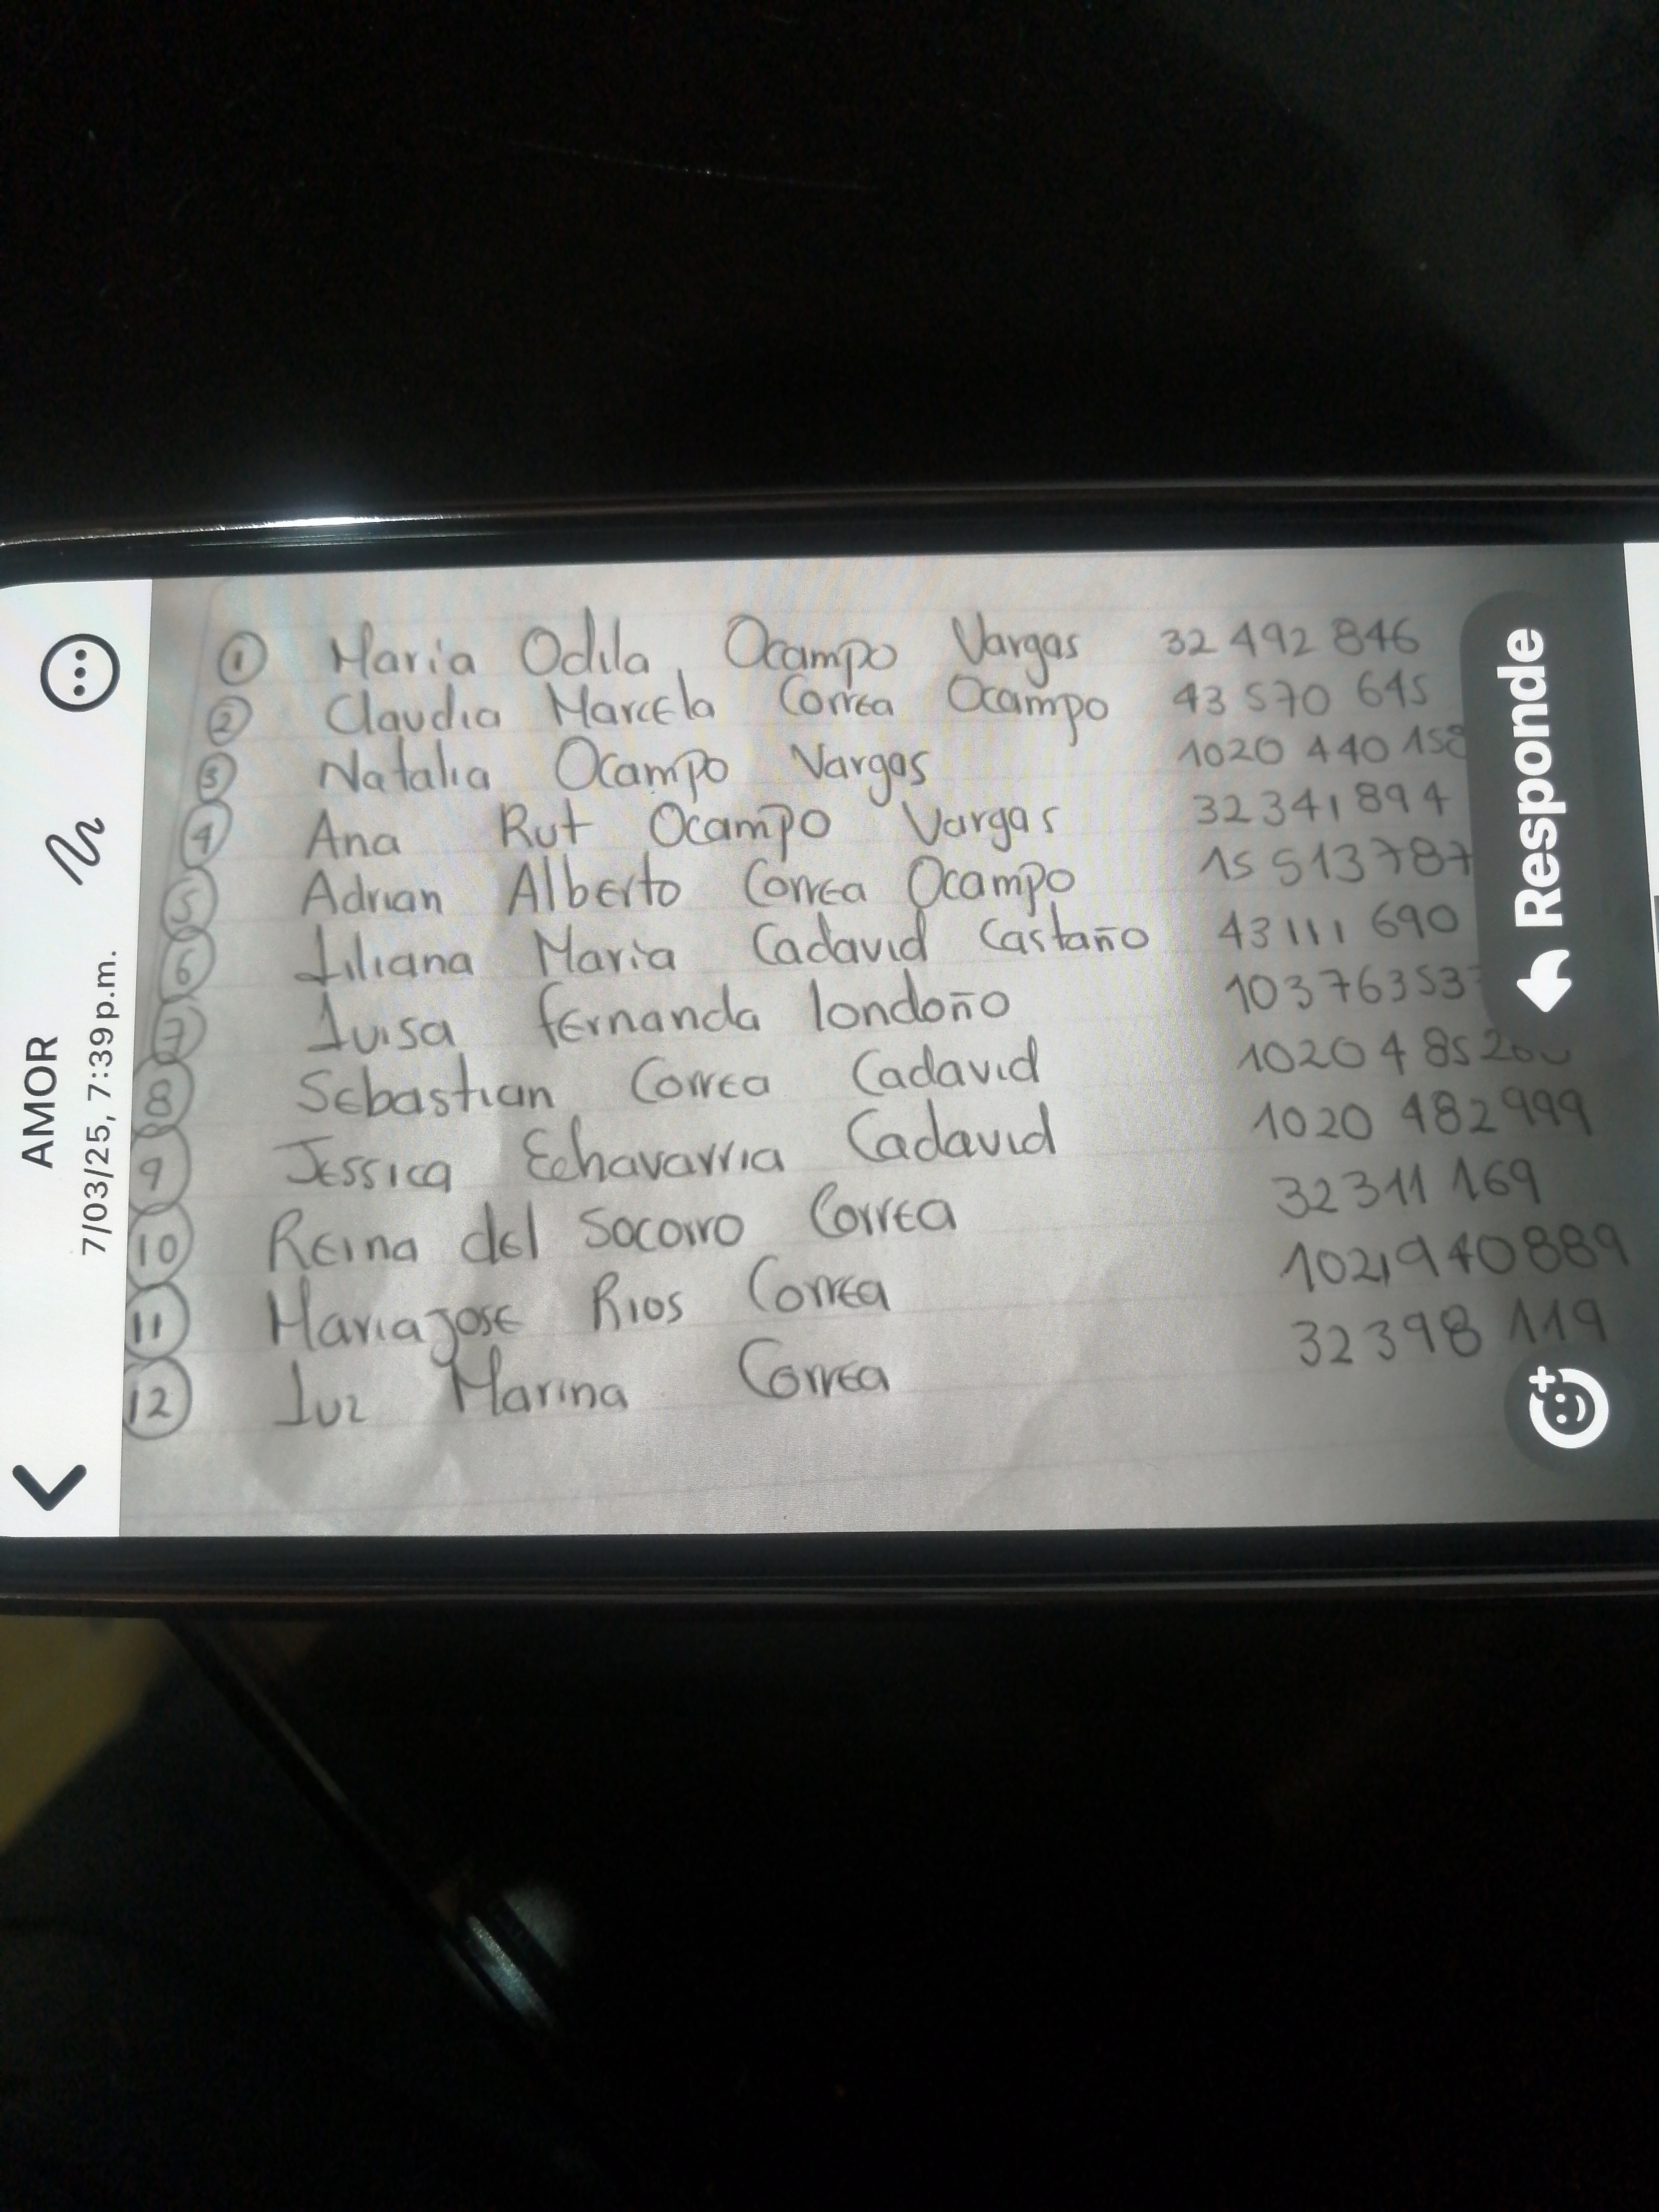 AMOR
7/03/25, 7:39 p.m.
1 Maria Odila Ocampo Vargas 32 492 846
2 Claudia Marcela Correa Ocampo 43 570 645
3 Natalia Ocampo Vargas 1020 440 158
4 Ana Rut Ocampo Vargas 32 341 894
5 Adrian Alberto Correa Ocampo 15 513 787
6 Liliana Maria Cadavid Castaño 43 111 690
7 Luisa fernanda londoño
8 Sebastian Correa Cadavid
9 Jessica Echavarria Cadavid 1020 482 999
10 Reina del Socorro Correa 32311 169
11 Mariajose Rios Correa 1021940889
12 Luz Marina Correa 32398 119
Responde